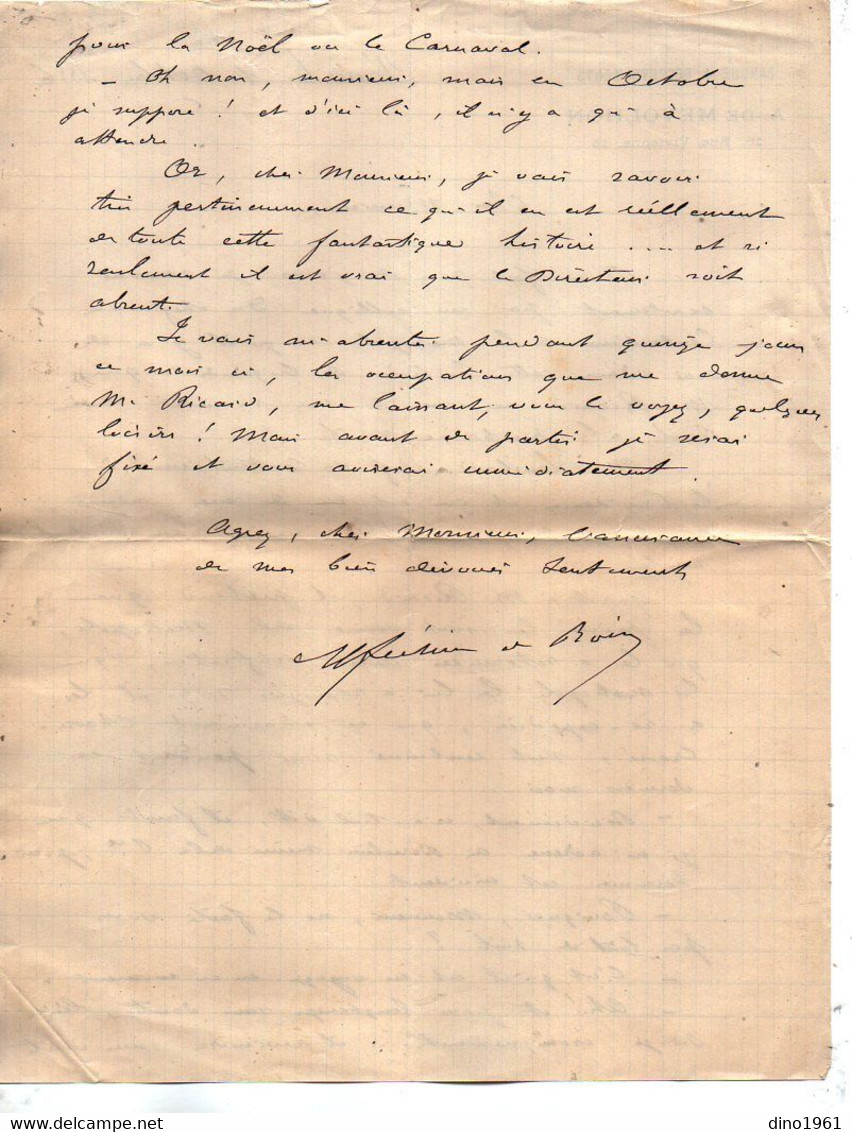 pour la Noël ou le Carnaval.
– Oh non, monsieur, mais en Octobre
je suppose ! et d'ici là, il n'y a qu'à
attendre.
Or, cher Monsieur, je vais savoir
très pertinemment ce qu'il en est réellement
de toute cette fantastique histoire .... et si
seulement il est vrai que le Directeur soit
absent.
Je vais m'absenter pendant quinze jours
ce mois ci, les occupations que me donne
M. Ricard, me laissant, vous le voyez, quelques
loisirs ! Mais avant de partir je serai
fixé et vous aviserai immédiatement.
Agréez, cher Monsieur, l'assurance
de mes bien dévoués sentiments
de
dino1961